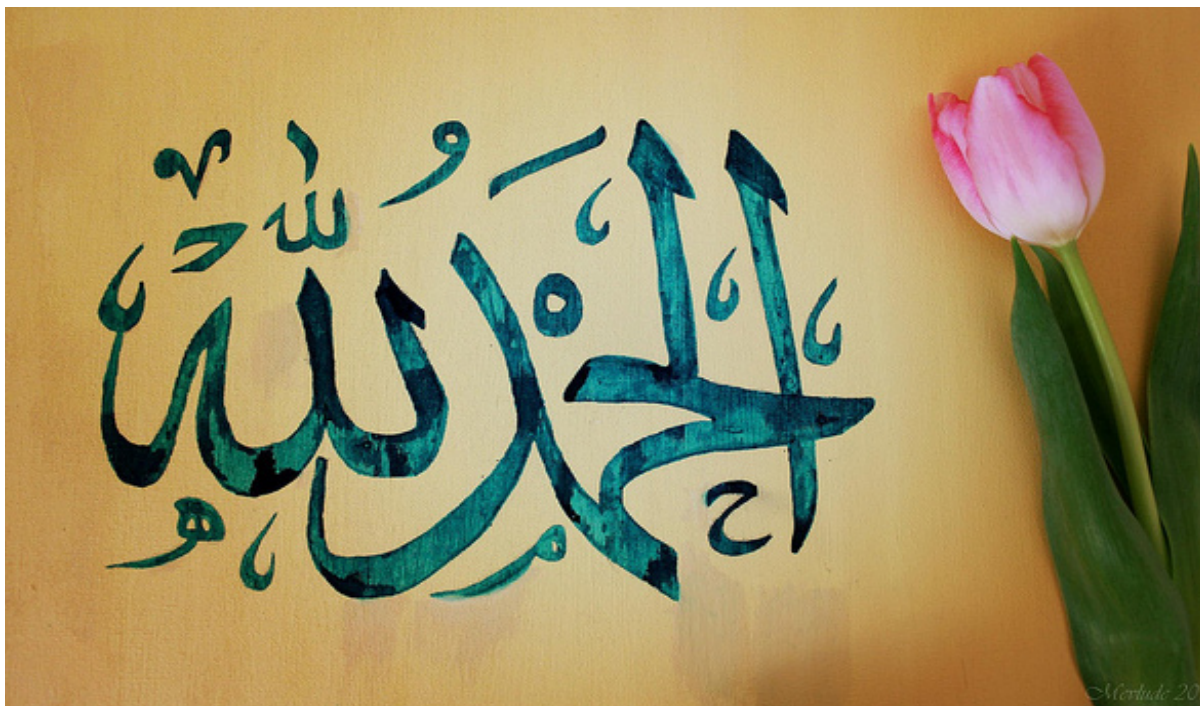 الحمد لله
Mevlude 20